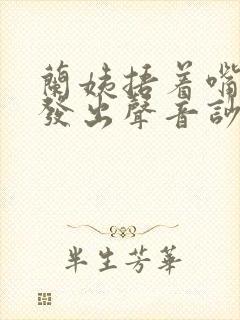 蘭姨捂着嘴
發出聲音訬
半生芳華